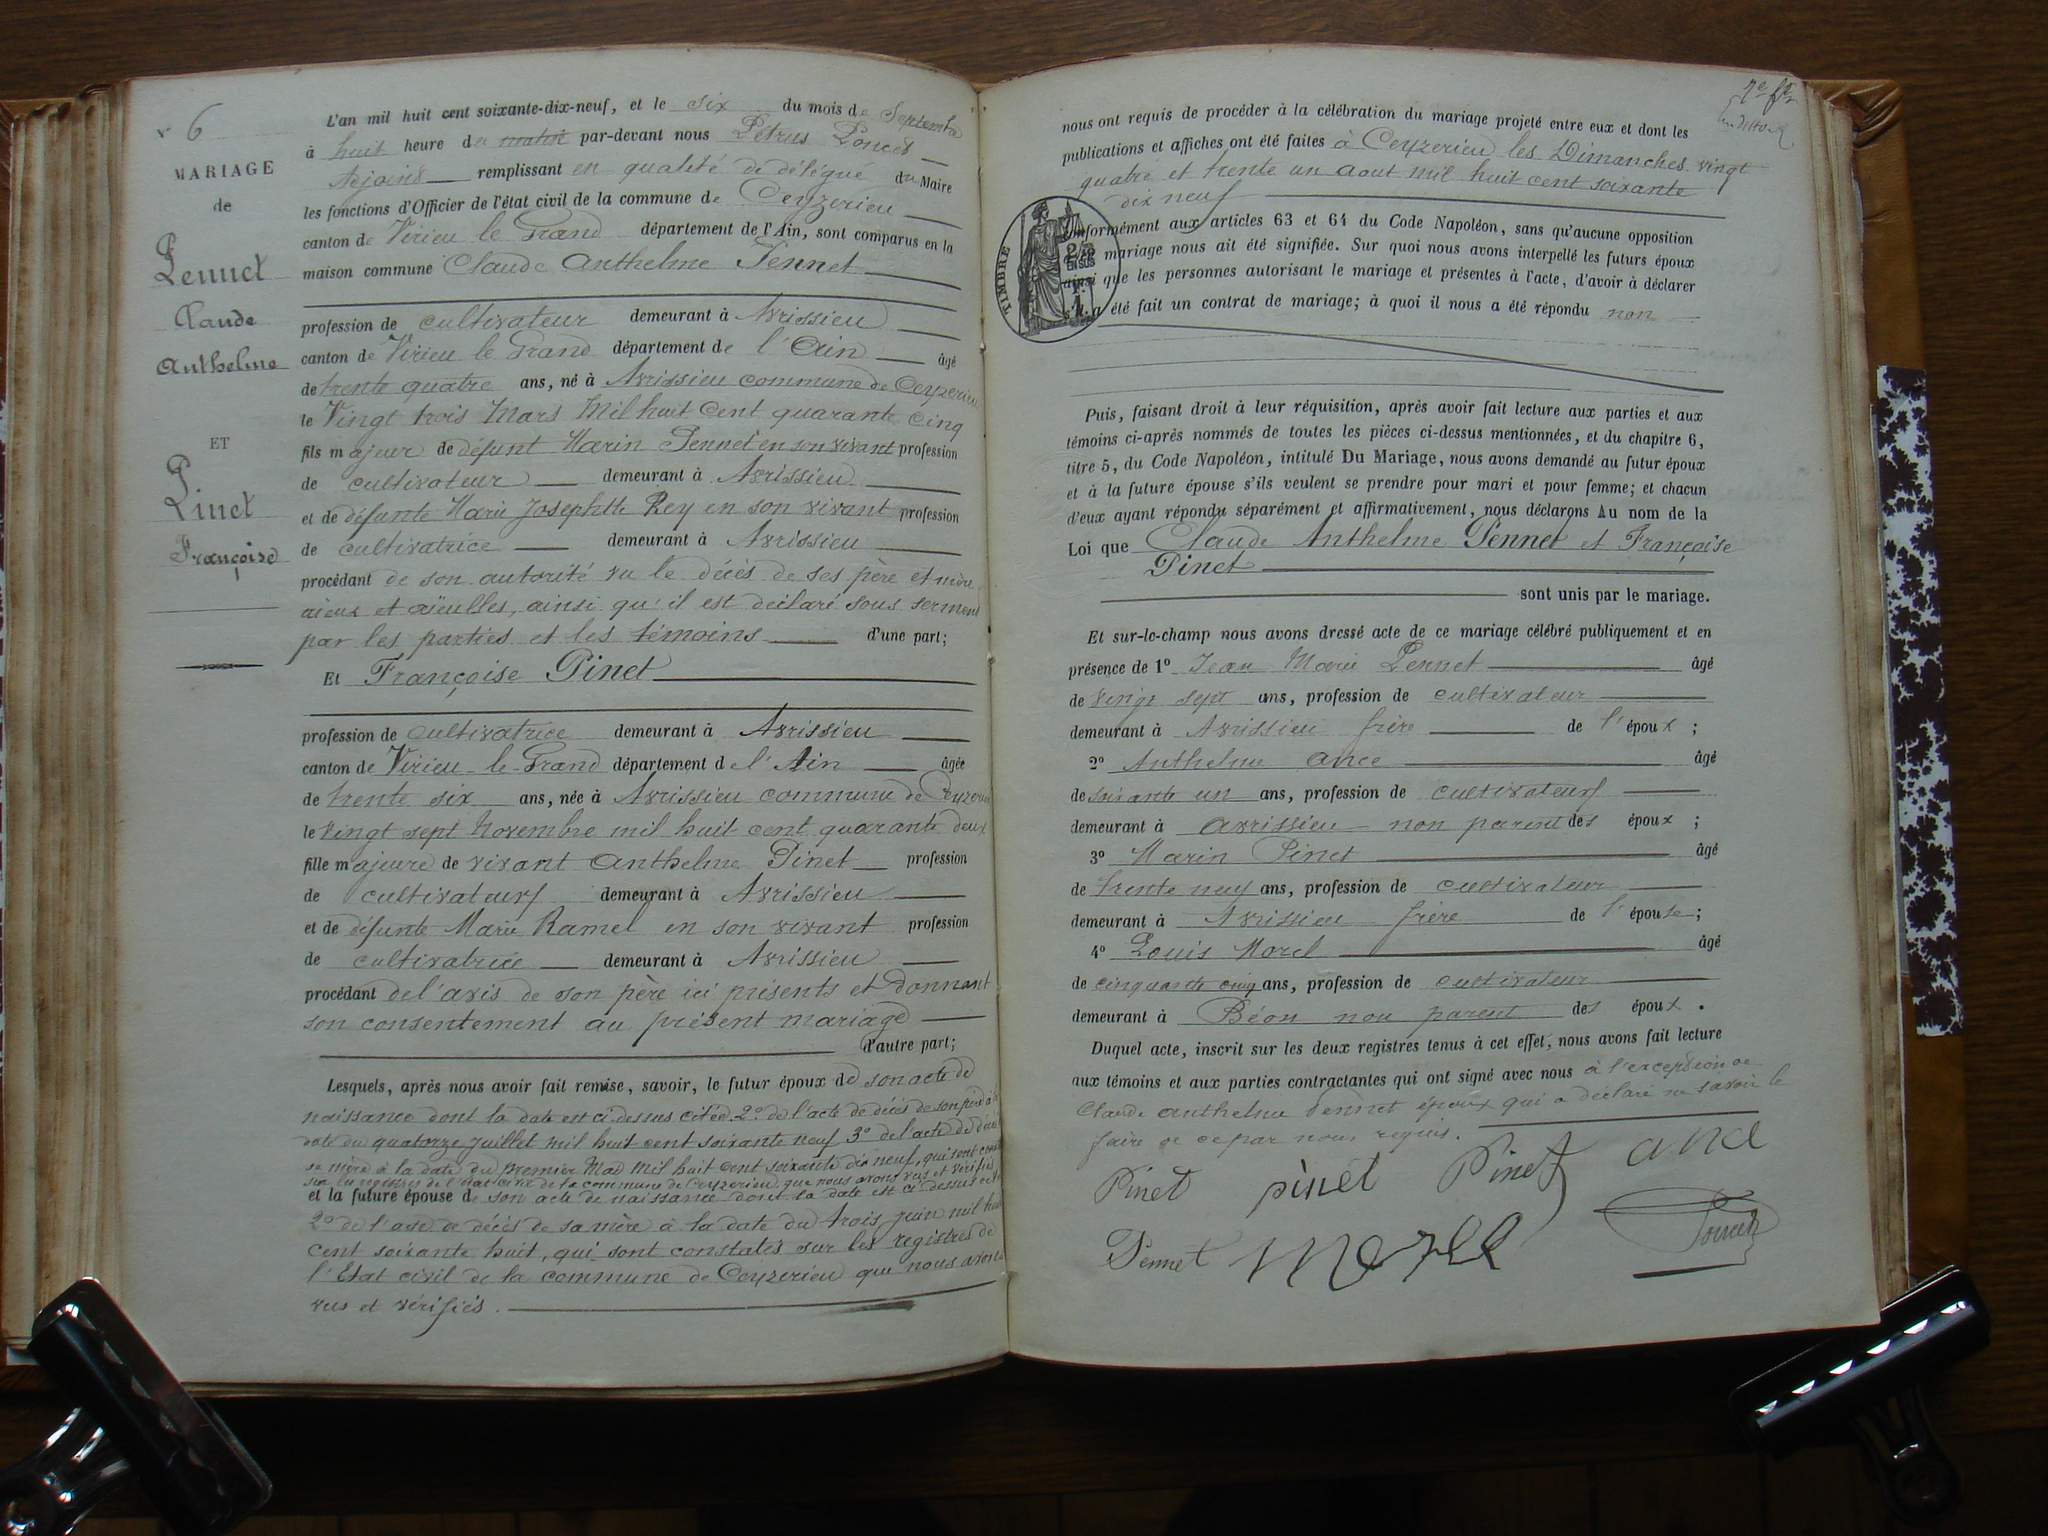 N° 6
MARIAGE
de
Pennet
Claude
Anthelme
ET
Pinet
Françoise
L'an mil huit cent soixante-dix-neuf, et le six du mois de Septembre
à huit heure du matin par-devant nous Pétrus Poncet
remplissant en qualité de délégué du Maire
les fonctions d'Officier de l'état civil de la commune de Ceyzerieu
canton de Virieu le Grand département de l'Ain, sont comparus en la
maison commune Claude Anthelme Pennet
profession de cultivateur demeurant à Avrissieu
canton de Virieu le Grand département de l'Ain âgé
de trente quatre ans, né à Avrissieu commune de Ceyzerieu
le Vingt trois Mars Mil huit Cent quarante cinq
fils majeur de défunt Marin Pennet en son vivant profession
de cultivateur demeurant à Avrissieu
et de défunte Marie Josephtte Rey en son vivant profession
de cultivatrice demeurant à Avrissieu
procédant de son autorité vu le décès de ses père et mère
aieux et aïeulles, ainsi qu'il est déclaré sous serment
par les parties et les témoins d'une part;
Et Françoise Pinet
profession de cultivatrice demeurant à Avrissieu
canton de Virieu-le-Grand département de l'Ain âgée
de trente six ans, née à Avrissieu commune de Ceyzerieu
le vingt sept Novembre mil huit cent quarante deux
fille majeure de vivant Anthelme Pinet profession
de cultivateur demeurant à Avrissieu
et de défunte Marie Ramel en son vivant profession
de cultivatrice demeurant à Avrissieu
procédant de l'avis de son père ici présents et donnant
son consentement au présent mariage
d'autre part;
Lesquels, après nous avoir fait remise, savoir, le futur époux de son acte de
naissance dont la date est ci-dessus citée 2° de l'acte de décès de son père à la
date du quatorze Juillet mil huit cent soixante neuf 3° de l'acte de décès
sa mère à la date du premier Mai mil huit cent soixante dix neuf, qui sont
sur les registres de l'état civil de la commune de Ceyzerieu que nous avons vus et vérifiés
et la future épouse de son acte de naissance dont la date est ci dessus
2° de l'acte de décès de sa mère à la date du trois juin mil huit
cent soixante huit, qui sont constatés sur les registres de
l'Etat civil de la commune de Ceyzerieu que nous avons
vus et vérifiés.
nous ont requis de procéder à la célébration du mariage projeté entre eux et dont les
publications et affiches ont été faites à Ceyzerieu les Dimanches vingt
quatre et trente un aout mil huit cent soixante
dix neuf
TIMBRE
2/10 EN SUS
conformément aux articles 63 et 64 du Code Napoléon, sans qu'aucune opposition
mariage nous ait été signifiée. Sur quoi nous avons interpellé les futurs époux
ainsi que les personnes autorisant le mariage et présentes à l'acte, d'avoir à déclarer
s'il a été fait un contrat de mariage; à quoi il nous a été répondu non
Puis, faisant droit à leur réquisition, après avoir fait lecture aux parties et aux
témoins ci-après nommés de toutes les pièces ci-dessus mentionnées, et du chapitre 6,
titre 5, du Code Napoléon, intitulé Du Mariage, nous avons demandé au futur époux
et à la future épouse s'ils veulent se prendre pour mari et pour femme; et chacun
d'eux ayant répondu séparément et affirmativement, nous déclarons Au nom de la
Loi que Claude Anthelme Pennet et Françoise
Pinet
sont unis par le mariage.
Et sur-le-champ nous avons dressé acte de ce mariage célébré publiquement et en
présence de 1° Jean Marie Pennet âgé
de vingt sept ans, profession de cultivateur
demeurant à Avrissieu frère de l'époux ;
2° Anthelme Ance âgé
de soixante un ans, profession de cultivateur
demeurant à avrissieu non parent des époux ;
3° Marin Pinet âgé
de trente neuf ans, profession de cultivateur
demeurant à Avrissieu frère de l'épouse ;
4° Louis Morel âgé
de cinquante cinq ans, profession de cultivateur
demeurant à Béon non parent des époux .
Duquel acte, inscrit sur les deux registres tenus à cet effet, nous avons fait lecture
aux témoins et aux parties contractantes qui ont signé avec nous à l'exception de
Claude Anthelme Pennet époux qui a déclaré ne savoir le
faire de ce par nous requis.
Pinet pinet Pinet ance
Pennet morel Poncet